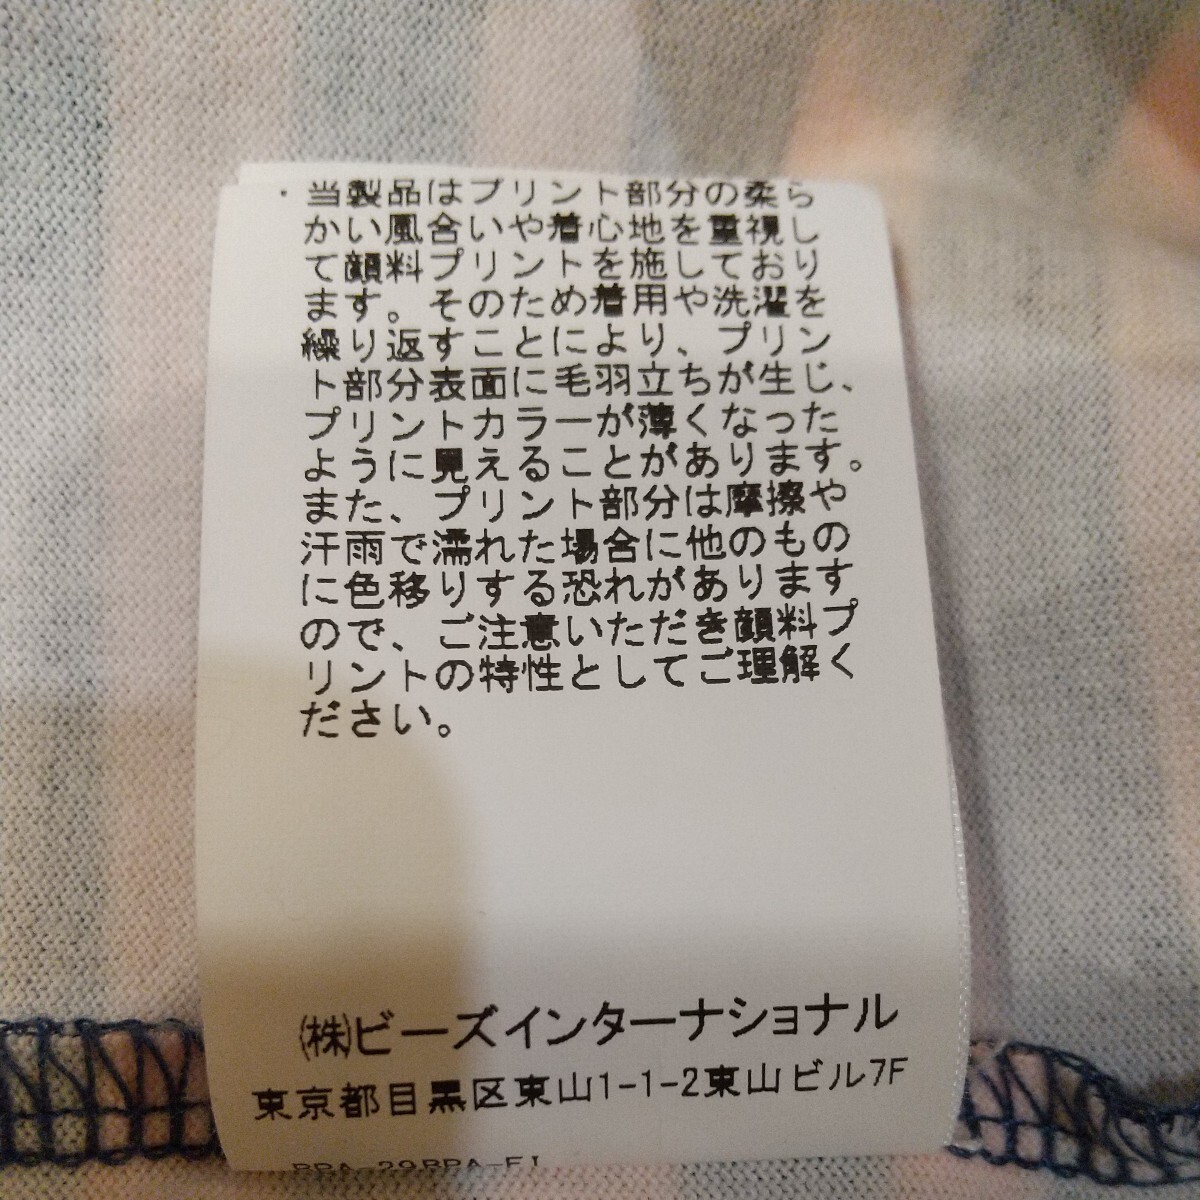 ・当製品はプリント部分の柔ら
かい風合いや着心地を重視し
て顔料プリントを施しており
ます。そのため着用や洗濯を
繰り返すことにより、プリン
ト部分表面に毛羽立ちが生じ、
プリントカラーが薄くなった
ように見えることがあります。
また、プリント部分は摩擦や
汗雨で濡れた場合に他のもの
に色移りする恐れがあります
ので、ご注意いただき顔料プ
リントの特性としてご理解く
ださい。
㈱ビーズインターナショナル
東京都目黒区東山1-1-2東山ビル7F